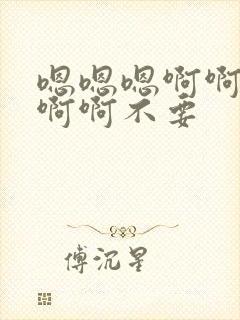 嗯嗯嗯啊啊
啊啊不要
傅沉星